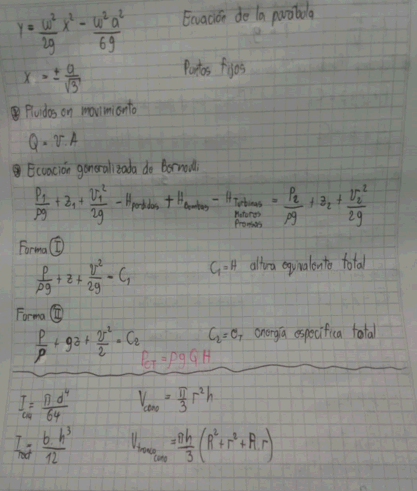 y = ω²/2g x² - ω²a²/6g Ecuación de la parábola
x = ± a/√3 Puntos fijos
Fluidos en movimiento
Q = v·A
Ecuación generalizada de Bernoulli
P₁/ρg + z₁ + v₁²/2g - H perdidas + H Bombas - H Turbinas Motores Prensas = P₂/ρg + z₂ + v₂²/2g
Forma I
P/ρg + z + v²/2g = C₁ C₁ = H altura equivalente total
Forma II
P/ρ + gz + v²/2 = C₂ C₂ = e_T energía específica total
ρ g Q H
I = π d⁴/64 V cono = π/3 r² h
I rect = b·h³/12 V tronco cono = πh/3 (R² + r² + R·r)